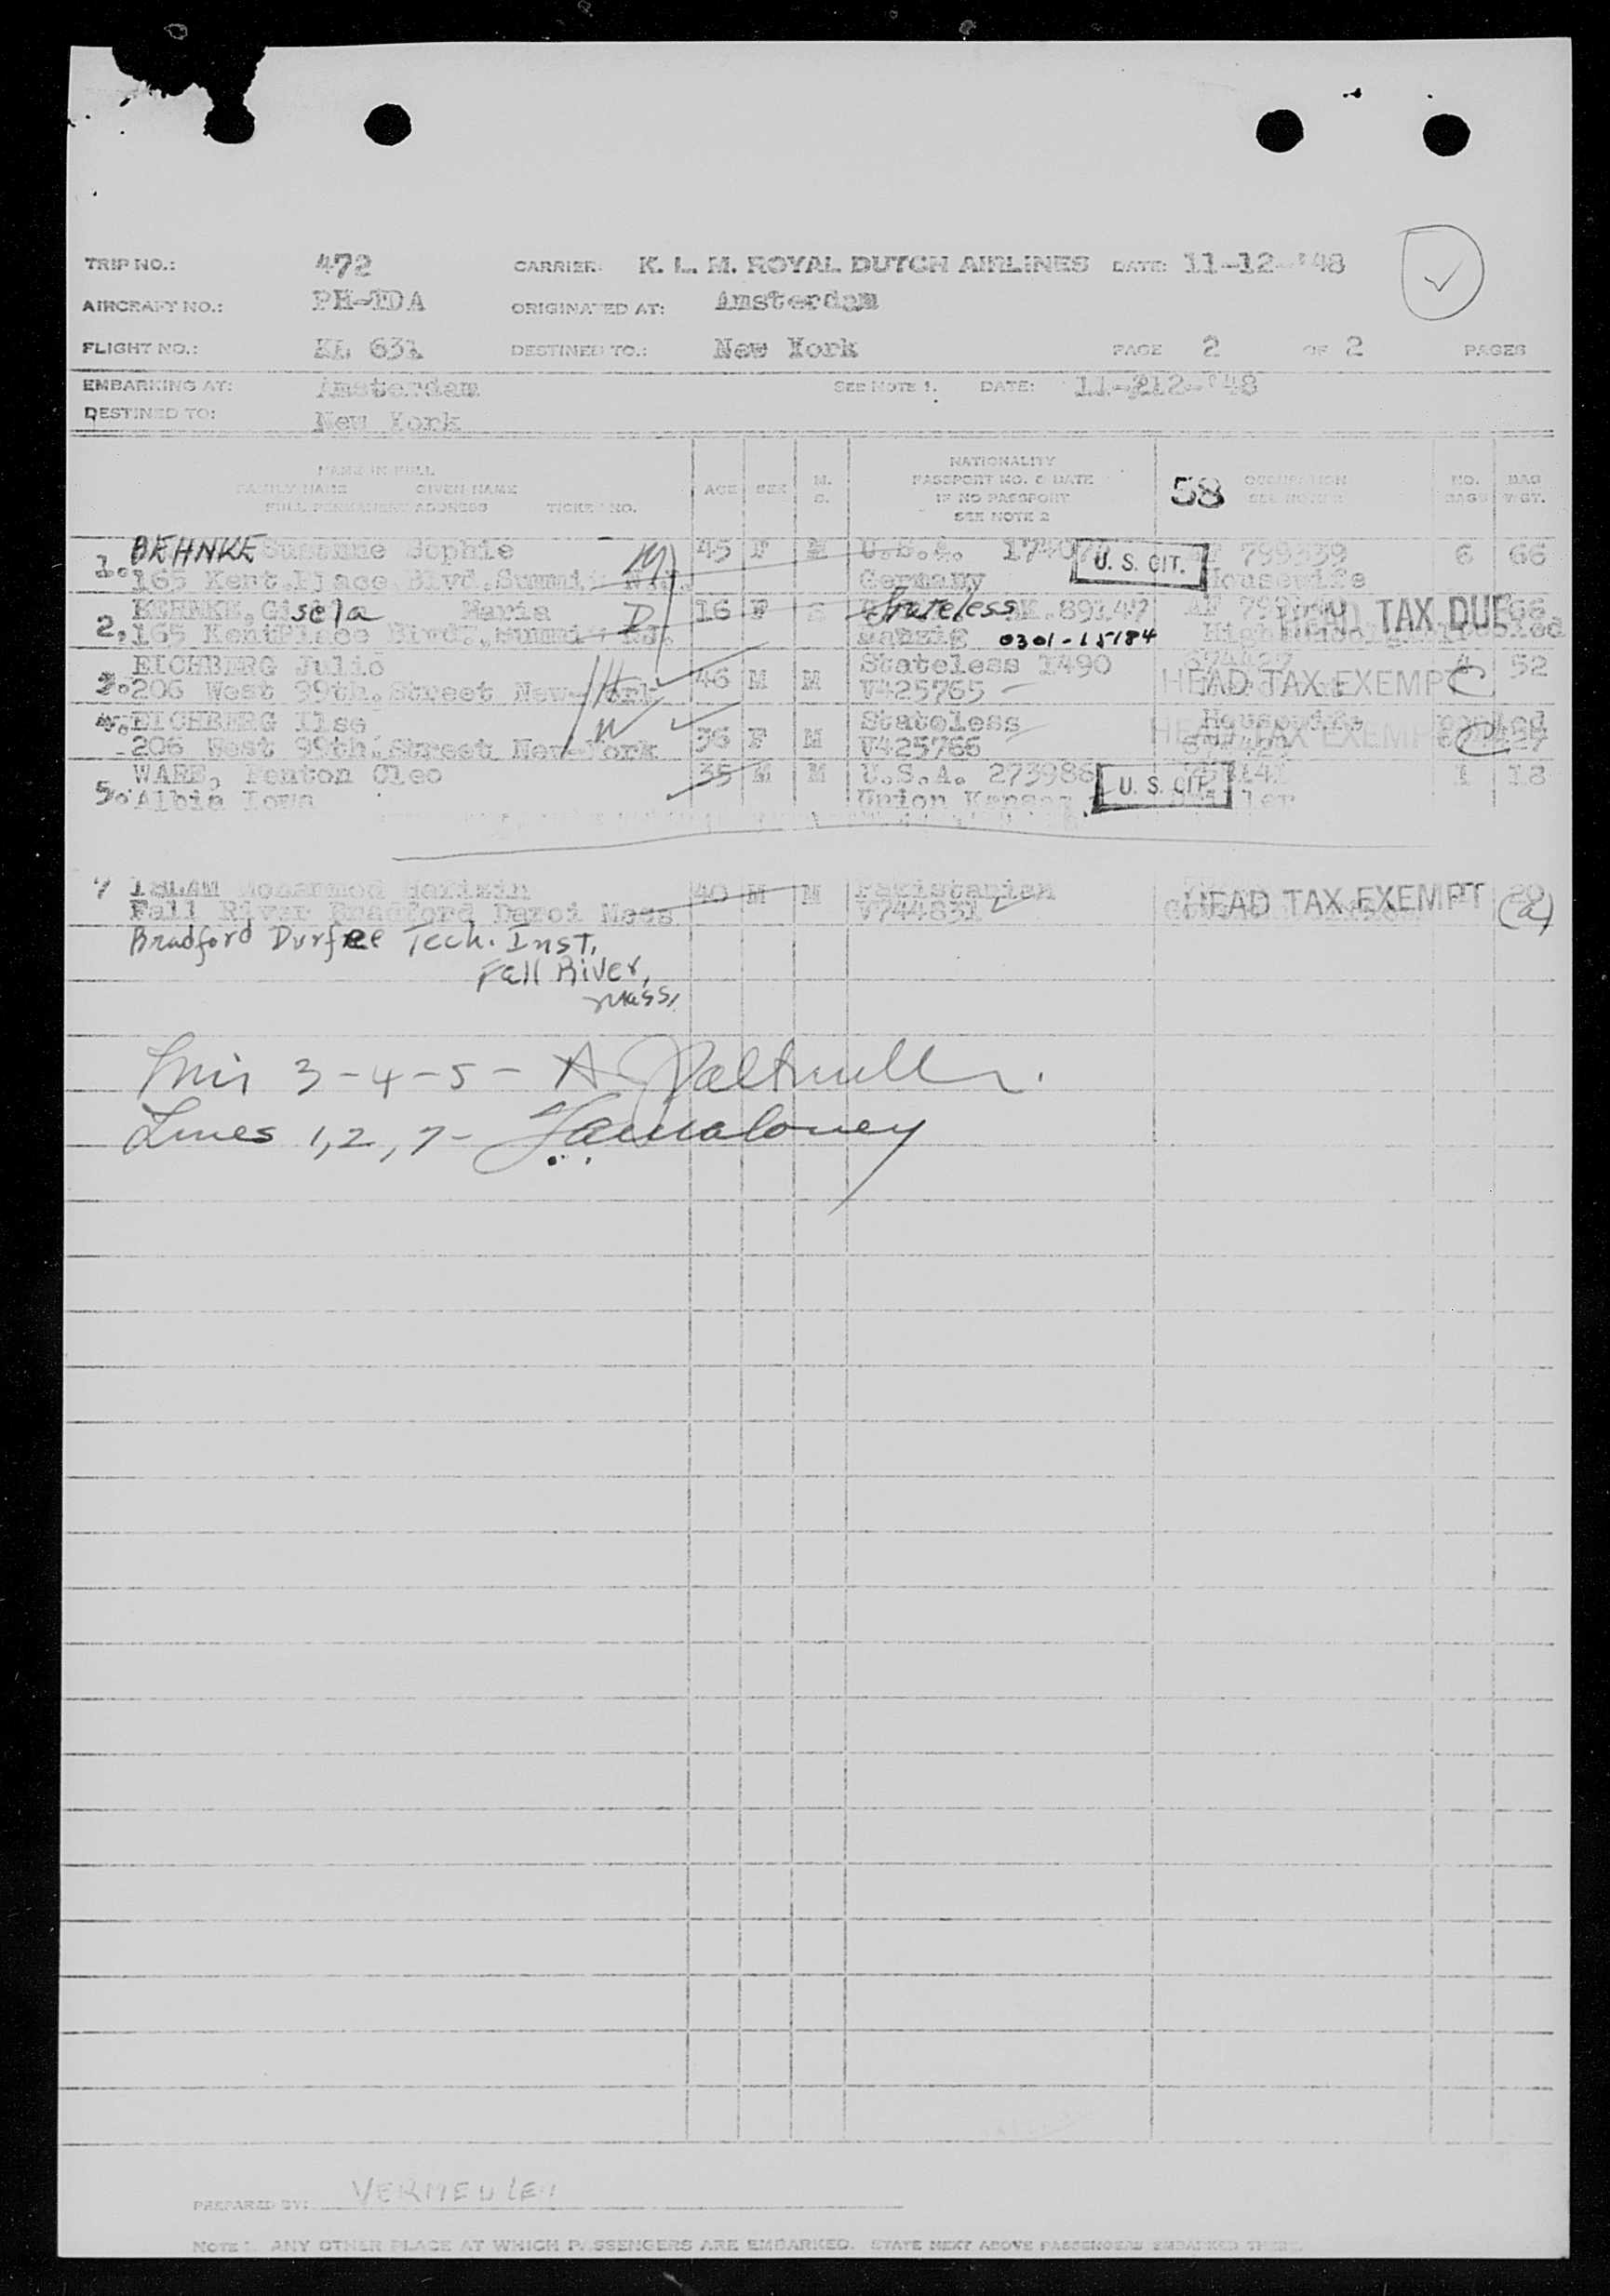 TRIP NO.: 472 CARRIER: K. L. M. ROYAL DUTCH AIRLINES DATE: 11-12-'48
AIRCRAFT NO.: PH-TDA ORIGINATED AT: Amsterdam
FLIGHT NO.: KL 631 DESTINED TO.: New York PAGE 2 OF 2 PAGES
EMBARKING AT: Amsterdam SEE NOTE 1. DATE: 11-212-'48
DESTINED TO: New York
NAME IN FULL
FAMILY NAME GIVEN NAME
FULL PERMANENT ADDRESS TICKET NO.
AGE SEX M. S.
NATIONALITY
PASSPORT NO. & DATE
IF NO PASSPORT
SEE NOTE 2
58 OCCUPATION
NO. BAGS BAG WGT.
1. BEHNKE Sophie M 45 F M U.S.A. U. S. CIT. 799339 6 66
165 Kent Place Blvd. Summit N.J. Germany Housewife
2. BEHNKE, Gisela Maria D 16 F S Stateless 89147 TAX DUE 66
165 Kent Place Blvd., Summit NJ. Danzig 0301-15184
3. EICHBERG Julio H 46 M M Stateless 1490 4 52
206 West 99th. Street New-York V425765 HEAD TAX EXEMPT C
4. EICHBERG Ilse W 36 F M Stateless Housewife pooled
206 West 99th. Street New-York V425766 HEAD TAX EXEMPT C
5. WARE, Fenton Cleo 35 M M U.S.A. 273986 U. S. CIT. 1 18
Albia Iowa Union Kansas
7 ISLAM 40 M M Pacistanian HEAD TAX EXEMPT 20
Fall River Bradford V744831 (a)
Bradford Durfee Tech. Inst.
Fall River,
Mass.
3-4-5- A
Lines 1,2,7-
PREPARED BY: VERMEULEN
NOTE 1. ANY OTHER PLACE AT WHICH PASSENGERS ARE EMBARKED. STATE NEXT ABOVE PASSENGERS EMBARKED THERE.